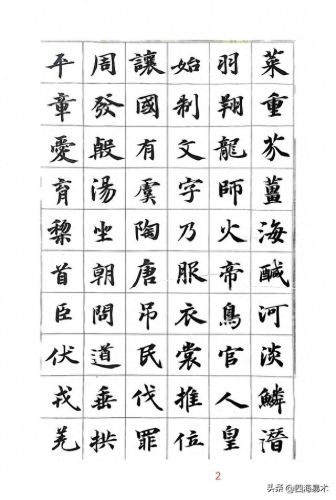 菜重芥薑海鹹河淡鱗潛
羽翔龍師火帝鳥官人皇
始制文字乃服衣裳推位
讓國有虞陶唐吊民伐罪
周發殷湯坐朝問道垂拱
平章愛育黎首臣伏戎羌
2
头条 @四海易木